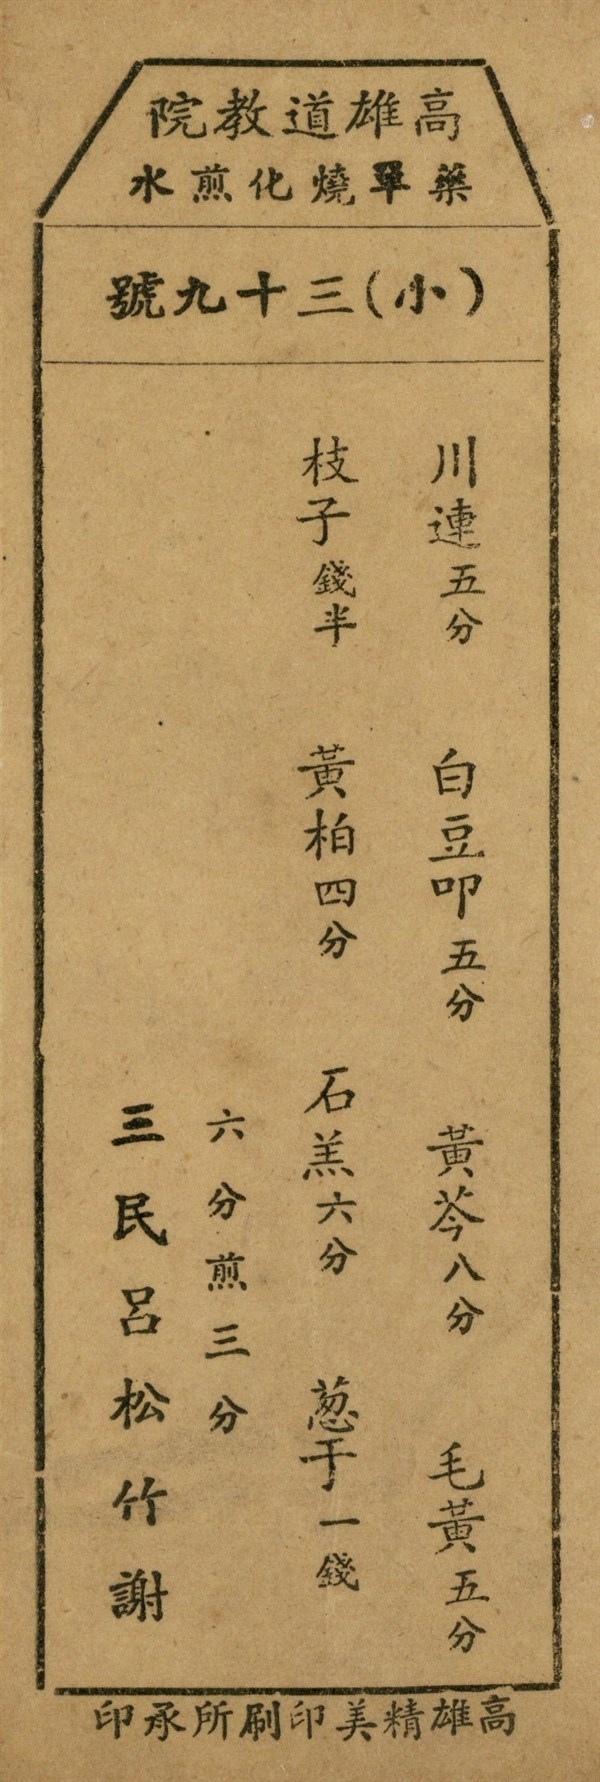 高雄道教院
藥單燒化煎水
(小)三十九號
川連五分 白豆叩五分 黃芩八分 毛黃五分
枝子錢半 黃柏四分 石羔六分 葱干一錢
六分煎三分
三民呂松竹謝
高雄精美印刷所承印